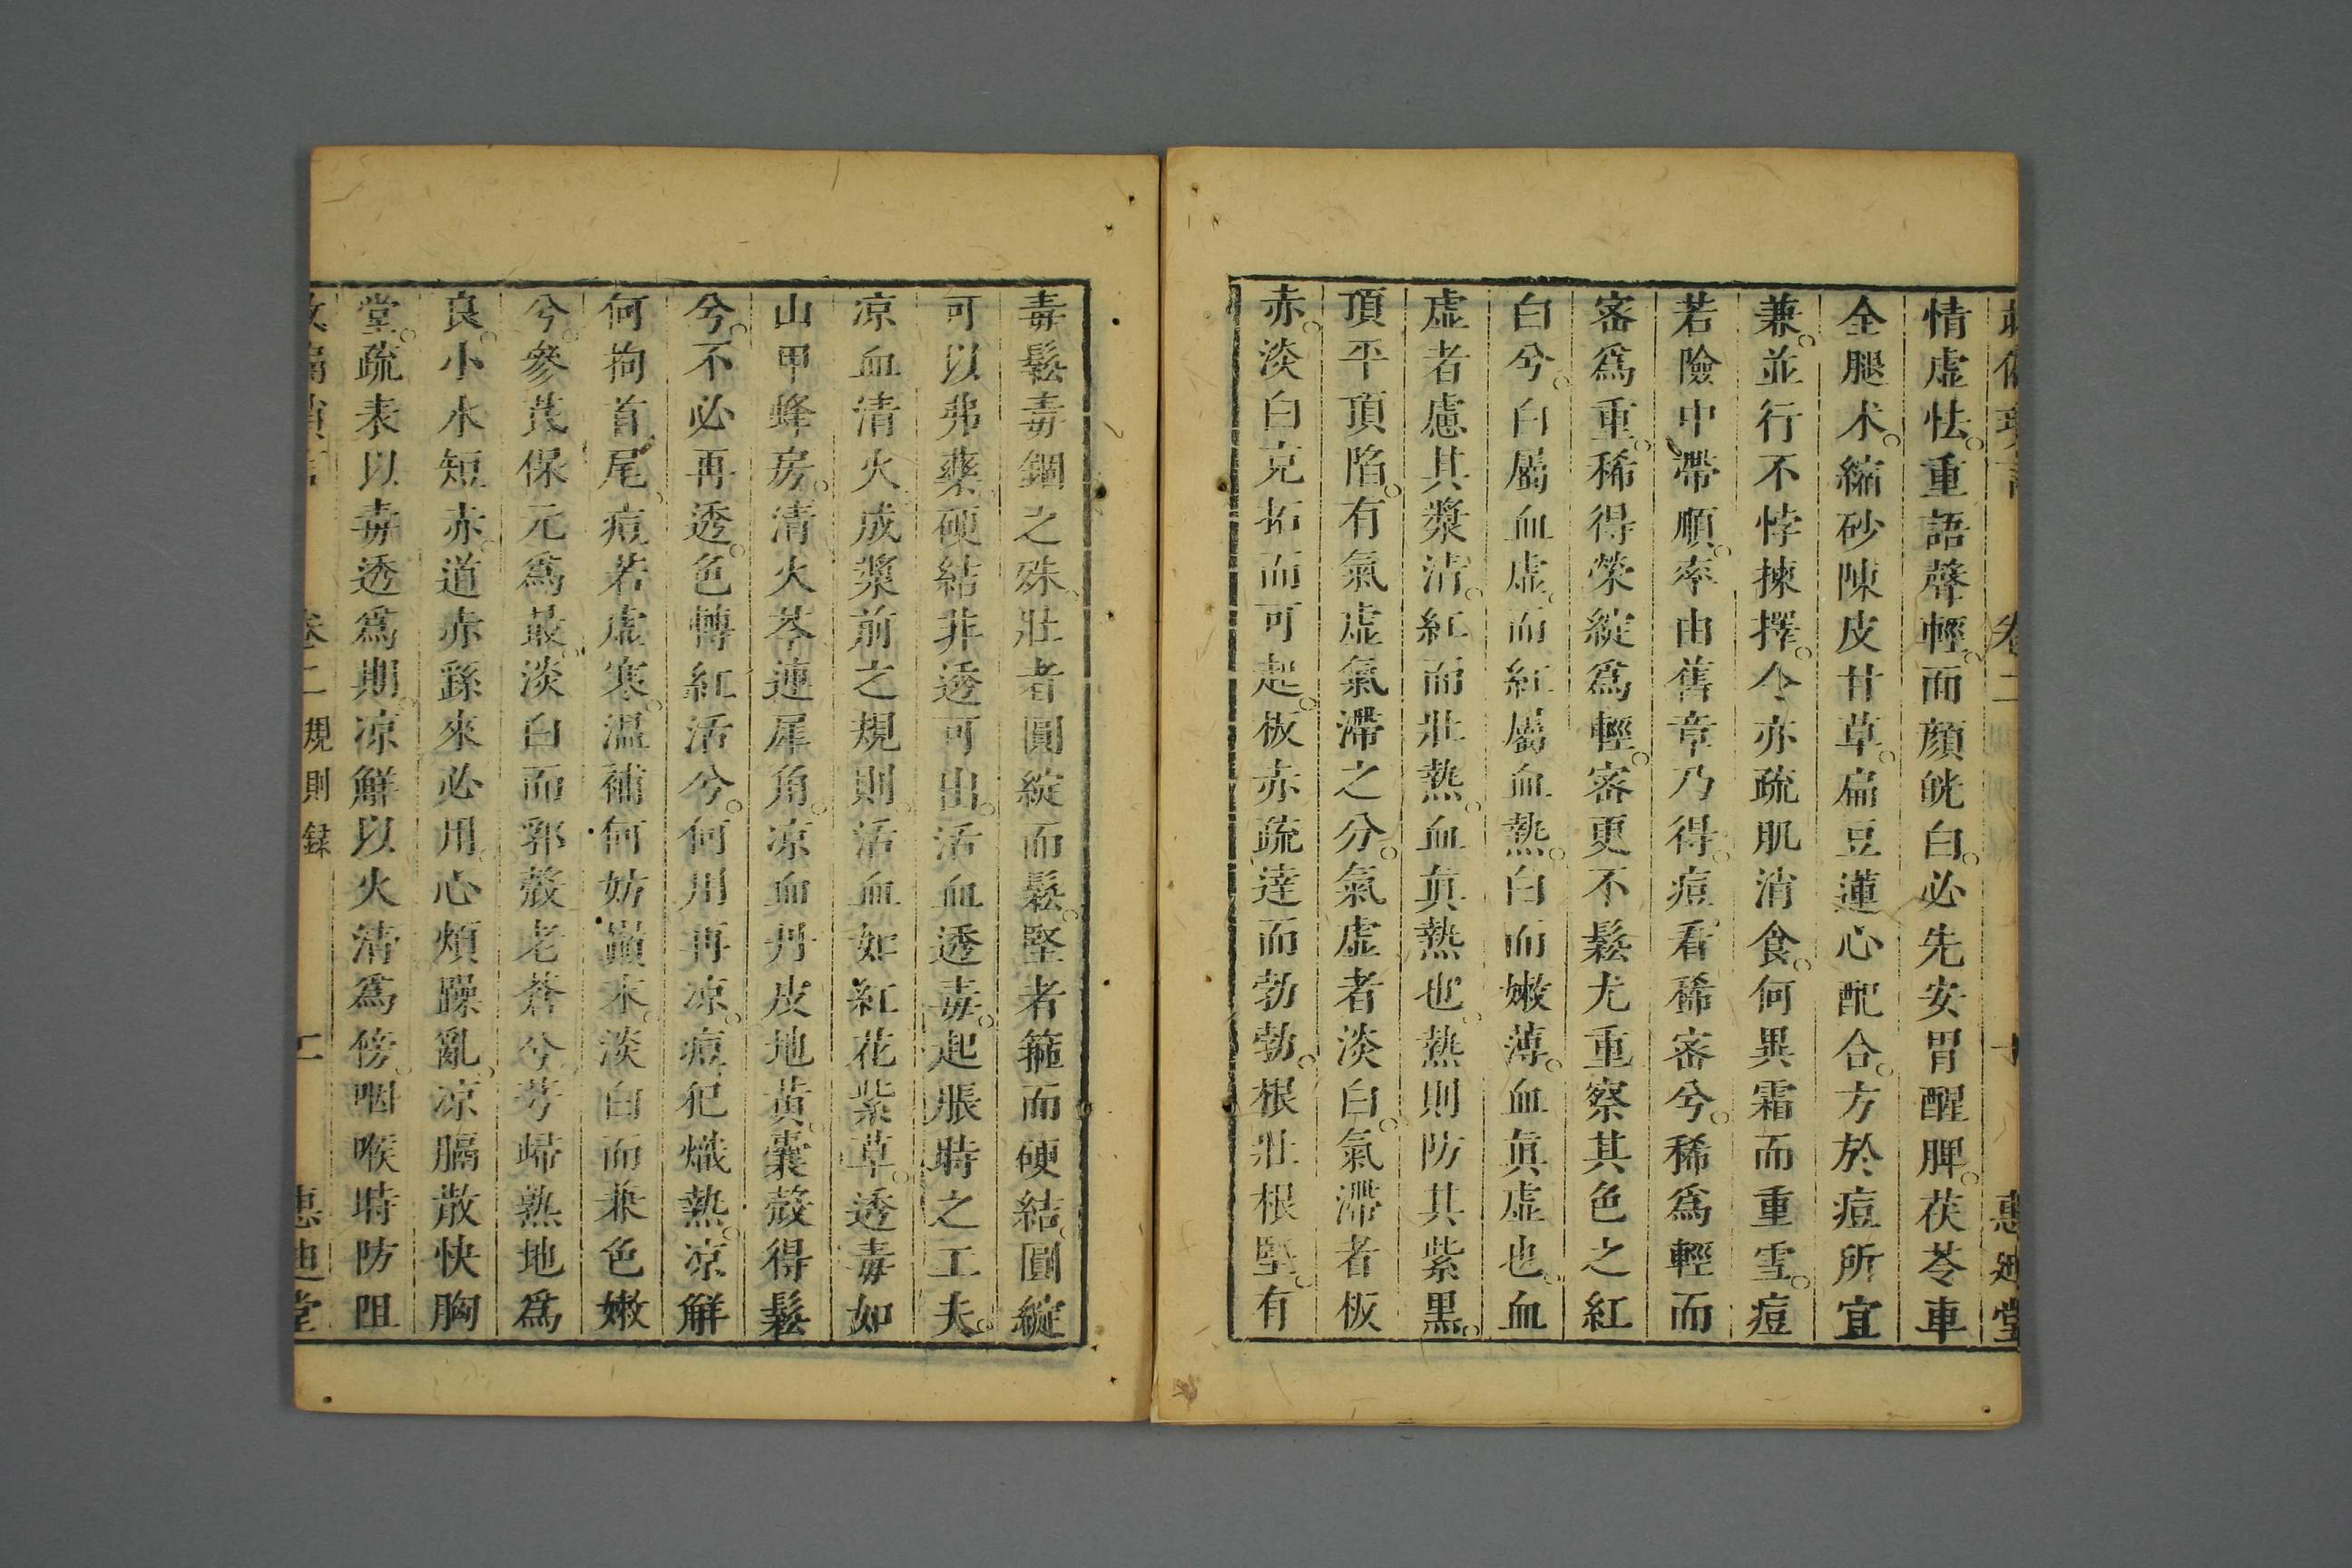 卷二
惠迪堂
情虛怯。重語聲輕。而顔皝白。必先安胃醒脾。茯苓車
全腿术。縮砂陳皮甘草。扁豆蓮心配合。方於痘所宜
兼。並行不悖揀擇。今亦疏肌消食。何異霜而重雪。痘
若險中帶順。率由舊章乃得。痘看稀密兮。稀爲輕而
密爲重。稀得榮綻爲輕。密更不鬆尤重察其色之紅
白兮。白屬血虛。而紅屬血熱。白而嫩薄。血眞虛也。血
虛者慮其漿清。紅而壯熱。血眞熱也。熱則防其紫黑。
頂平頂陷。有氣虛氣滯之分。氣虛者淡白。氣滯者板
赤。淡白克拓而可起。板赤疏達而勃勃。根壯根堅。有
毒鬆毒錮之殊。壯者圓綻而鬆。堅者箍而硬結。圓綻
可以弗藥。硬結非透可出。活血透毒。起脹時之工夫。
凉血清火。成漿前之規則。活血如紅花紫草。透毒如
山甲蜂房。清火芩連犀角。凉血丹皮地黃。囊殼得鬆
兮。不必再透。色轉紅活兮。何用再凉。痘犯熾熱。凉解
何拘首尾。痘若虛寒。溫補何妨巔末。淡白而兼色嫩
兮。參芪保元爲最。淡白而郛殼老蒼兮芎歸熟地爲
良。小水短赤。道赤繇來必用。心煩躁亂。凉膈散快胸
堂。疏表以毒透爲期。凉解以火清爲傍。咽喉時防阻
卷二 規則錄
惠迪堂